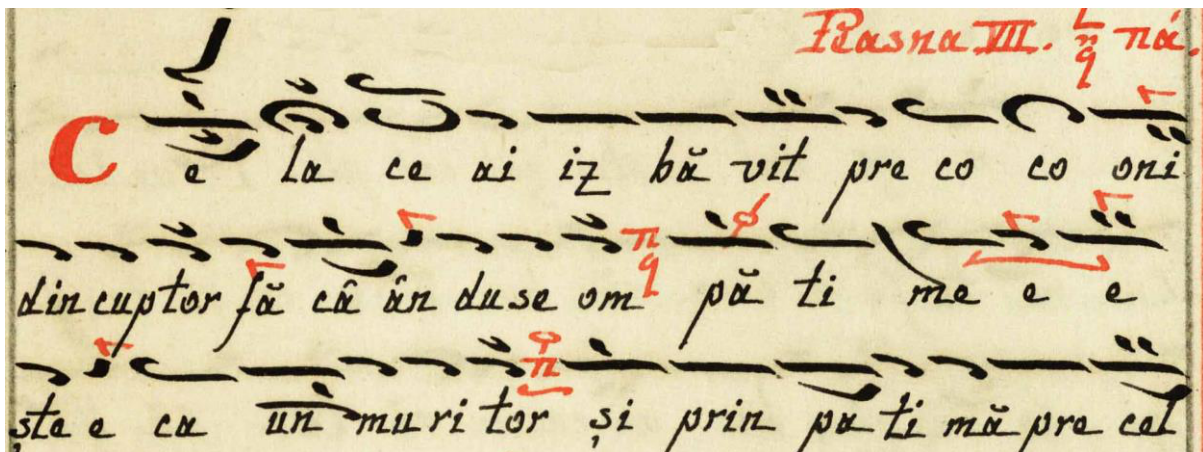 Pasna VII. πá.
C e la ce ai iz bă vit pre co co oni
din cuptor fă câ ân du se om pă ti me e e
ște e ca un mu ri tor și prin pa ti mă pre cel